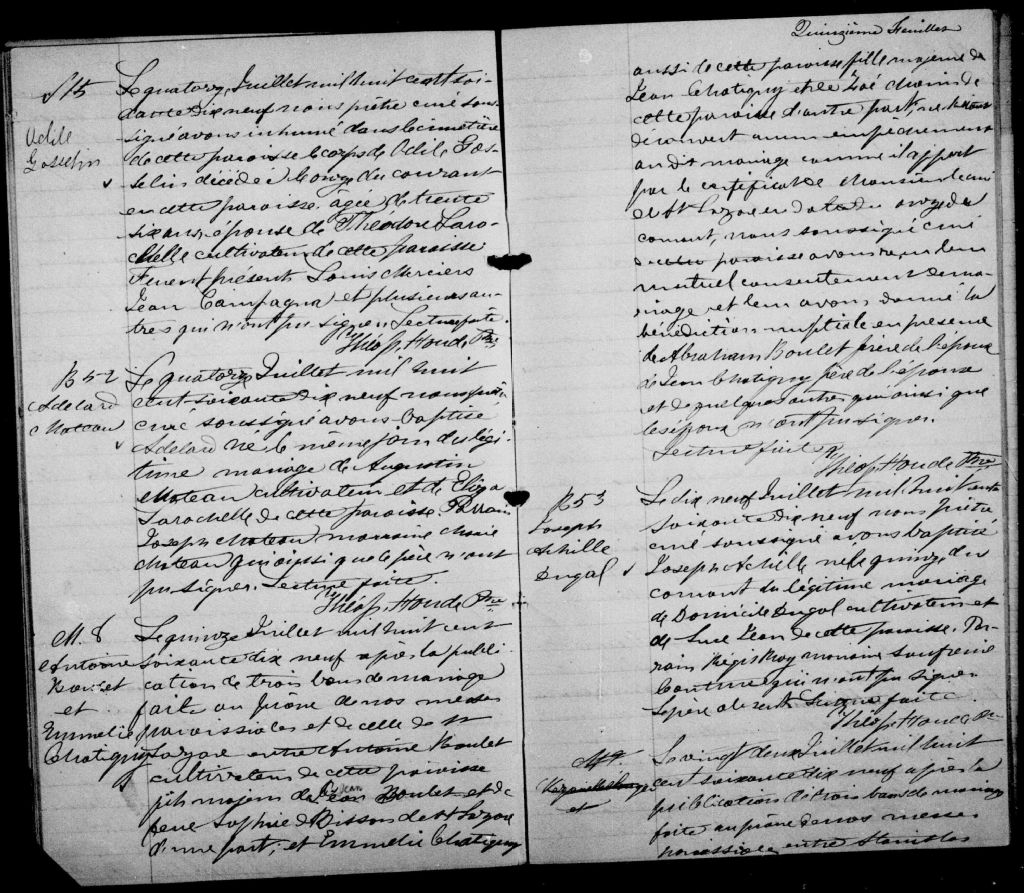 S 15
Odile
Gosselin
Le quatorze Juillet mil huit cent soi-
xante dix neuf nous prêtre curé sous-
signé avons inhumé dans le cimetière
de cette paroisse le corps de Odile Gos-
selin décédée le onze du courant
en cette paroisse. âgée de trente
six ans, épouse de Théodore Laro-
chelle cultivateur de cette paroisse
Furent présents Louis Merciers
Jean Campagna et plusieurs au-
tres qui n'ont pu signer. Lecture faite.
Théop. Houde Ptre
B 52
Adelard
Moteau
Le quatorze Juillet mil huit
cent soixante dix neuf nous prêtre
curé soussigné avons baptisé
Adelard né le même jour du légi-
time mariage de Augustin
Moteau cultivateur et de Eliza
Larochelle de cette paroisse. Parrain
Joseph Moteau marraine Marie
Moteau qui ainsi que le père n'ont
pu signer. Lecture faite.
Théop. Houde Ptre
M. 8
Antoine
Boulet
et
Emmelie
Chatigny
Le quinze Juillet mil huit cent
soixante dix neuf après la publi-
cation de trois bans de mariage
faite au prône de nos messes
paroissiales et de celle de St
Lazare entre Antoine Boulet
cultivateur de cette paroisse
fils majeur de Jean Boulet et de
feue Sophie Bisson de St Lazare
d'une part; et Emmélie Chatigny
Quinzième Feuillet
aussi de cette paroisse fille majeure de
Jean Chatigny et de Zoé
cette paroisse d'autre part, ne s'étant
découvert aucun empêchement
au dit mariage comme il appert
par le certificat de Monsieur le curé
de St Lazare en date du onze du
courant, nous soussigné curé
de cette paroisse avons reçu leur
mutuel consentement de ma-
riage et leur avons donné la
bénédiction nuptiale en présence
de Abraham Boulet frère de l'époux
de Jean Chatigny père de l'épouse
et de quelques autres qui ainsi que
les époux n'ont pu signer.
Lecture faite
Théop. Houde Ptre
B 53
Joseph
Achille
Dugal
Le dix neuf Juillet mil huit cent
soixante dix neuf nous prêtre
curé soussigné avons baptisé
Joseph Achille né le quinze du
courant du légitime mariage
de Domicile Dugal cultivateur et
de Luce Jean de cette paroisse. Par-
rain Régis Roy marraine
Couture qui n'ont pu signer
le père absent. Lecture faite
Théop. Houde Ptre
et
Le vingt deux Juillet mil huit
cent soixante dix neuf après la
publication de trois bans de mariage
faite au prône de nos messes
paroissiales entre Stanislas